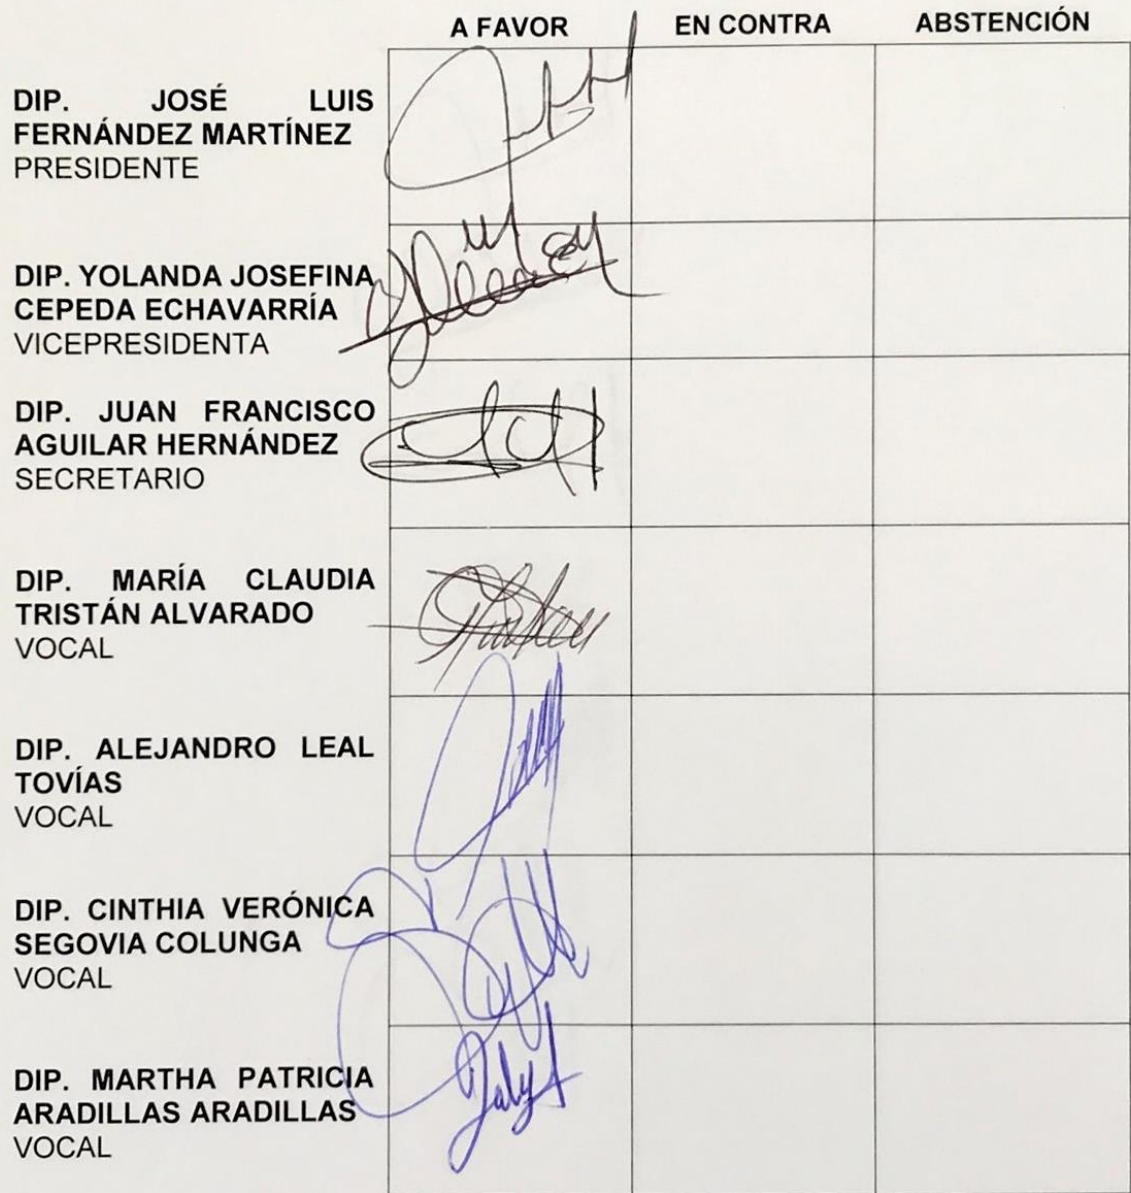 A FAVOR EN CONTRA ABSTENCIÓN
DIP. JOSÉ LUIS
FERNÁNDEZ MARTÍNEZ
PRESIDENTE
DIP. YOLANDA JOSEFINA
CEPEDA ECHAVARRÍA
VICEPRESIDENTA
DIP. JUAN FRANCISCO
AGUILAR HERNÁNDEZ
SECRETARIO
DIP. MARÍA CLAUDIA
TRISTÁN ALVARADO
VOCAL
DIP. ALEJANDRO LEAL
TOVÍAS
VOCAL
DIP. CINTHIA VERÓNICA
SEGOVIA COLUNGA
VOCAL
DIP. MARTHA PATRICIA
ARADILLAS ARADILLAS
VOCAL